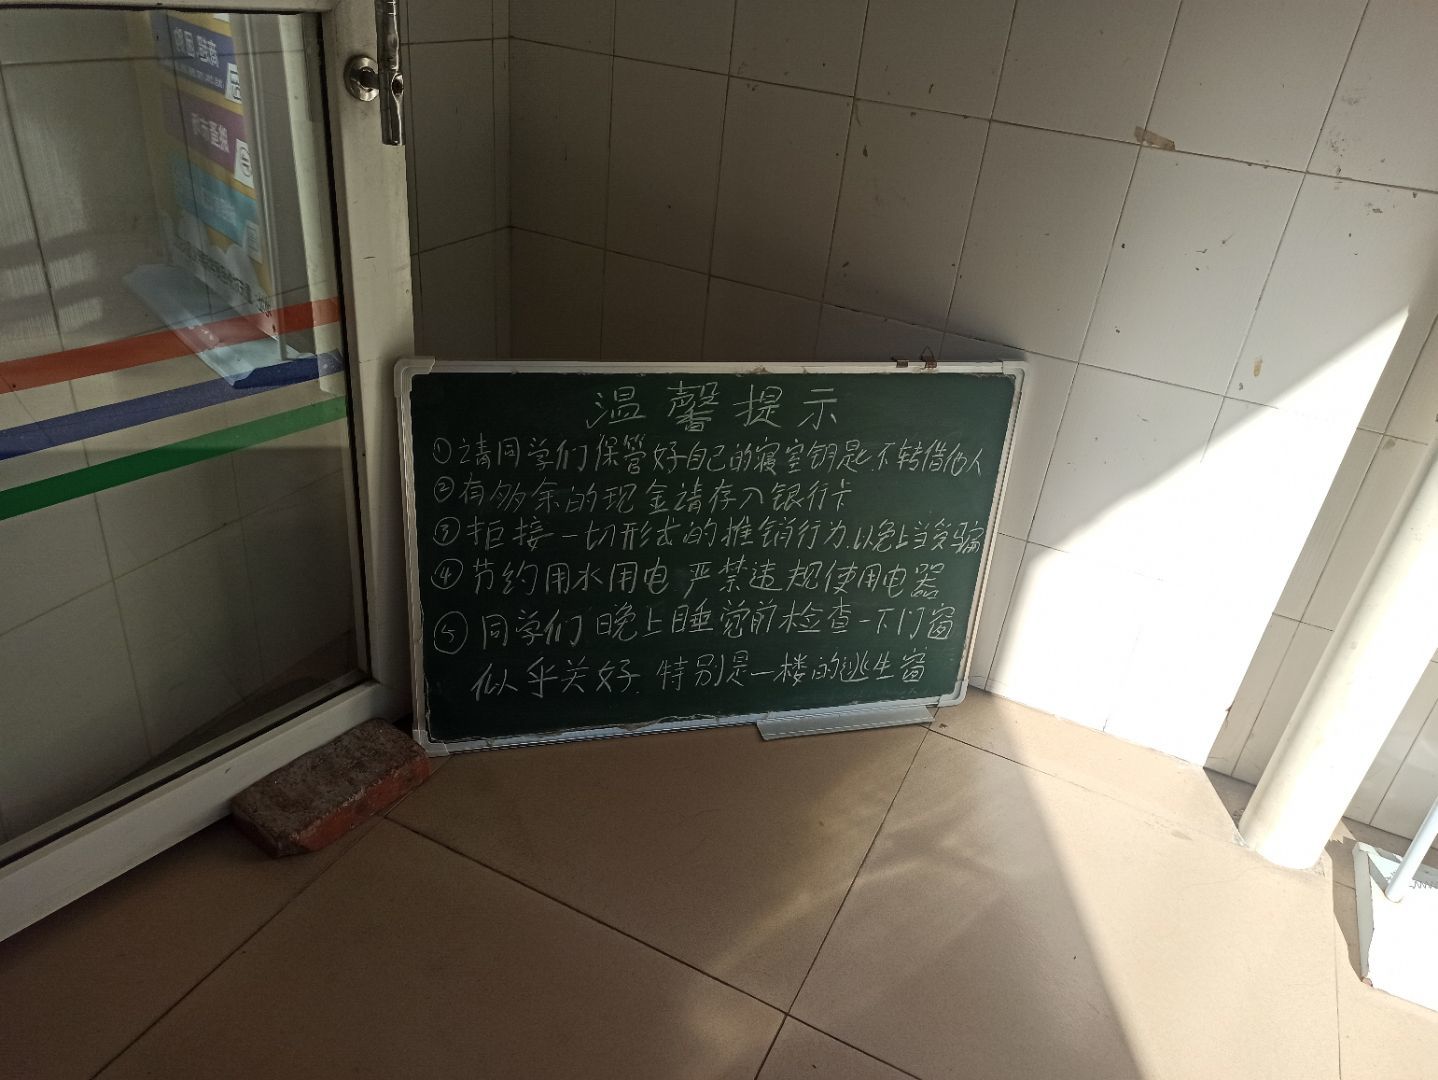 温馨提示
①请同学们保管好自己的寝室钥匙.不转借他人
②有多余的现金请存入银行卡
③拒接一切形式的推销行为.以免上当受骗
④节约用水用电 严禁违规使用电器
⑤同学们晚上睡觉前检查一下门窗
似乎关好.特别是一楼的逃生窗